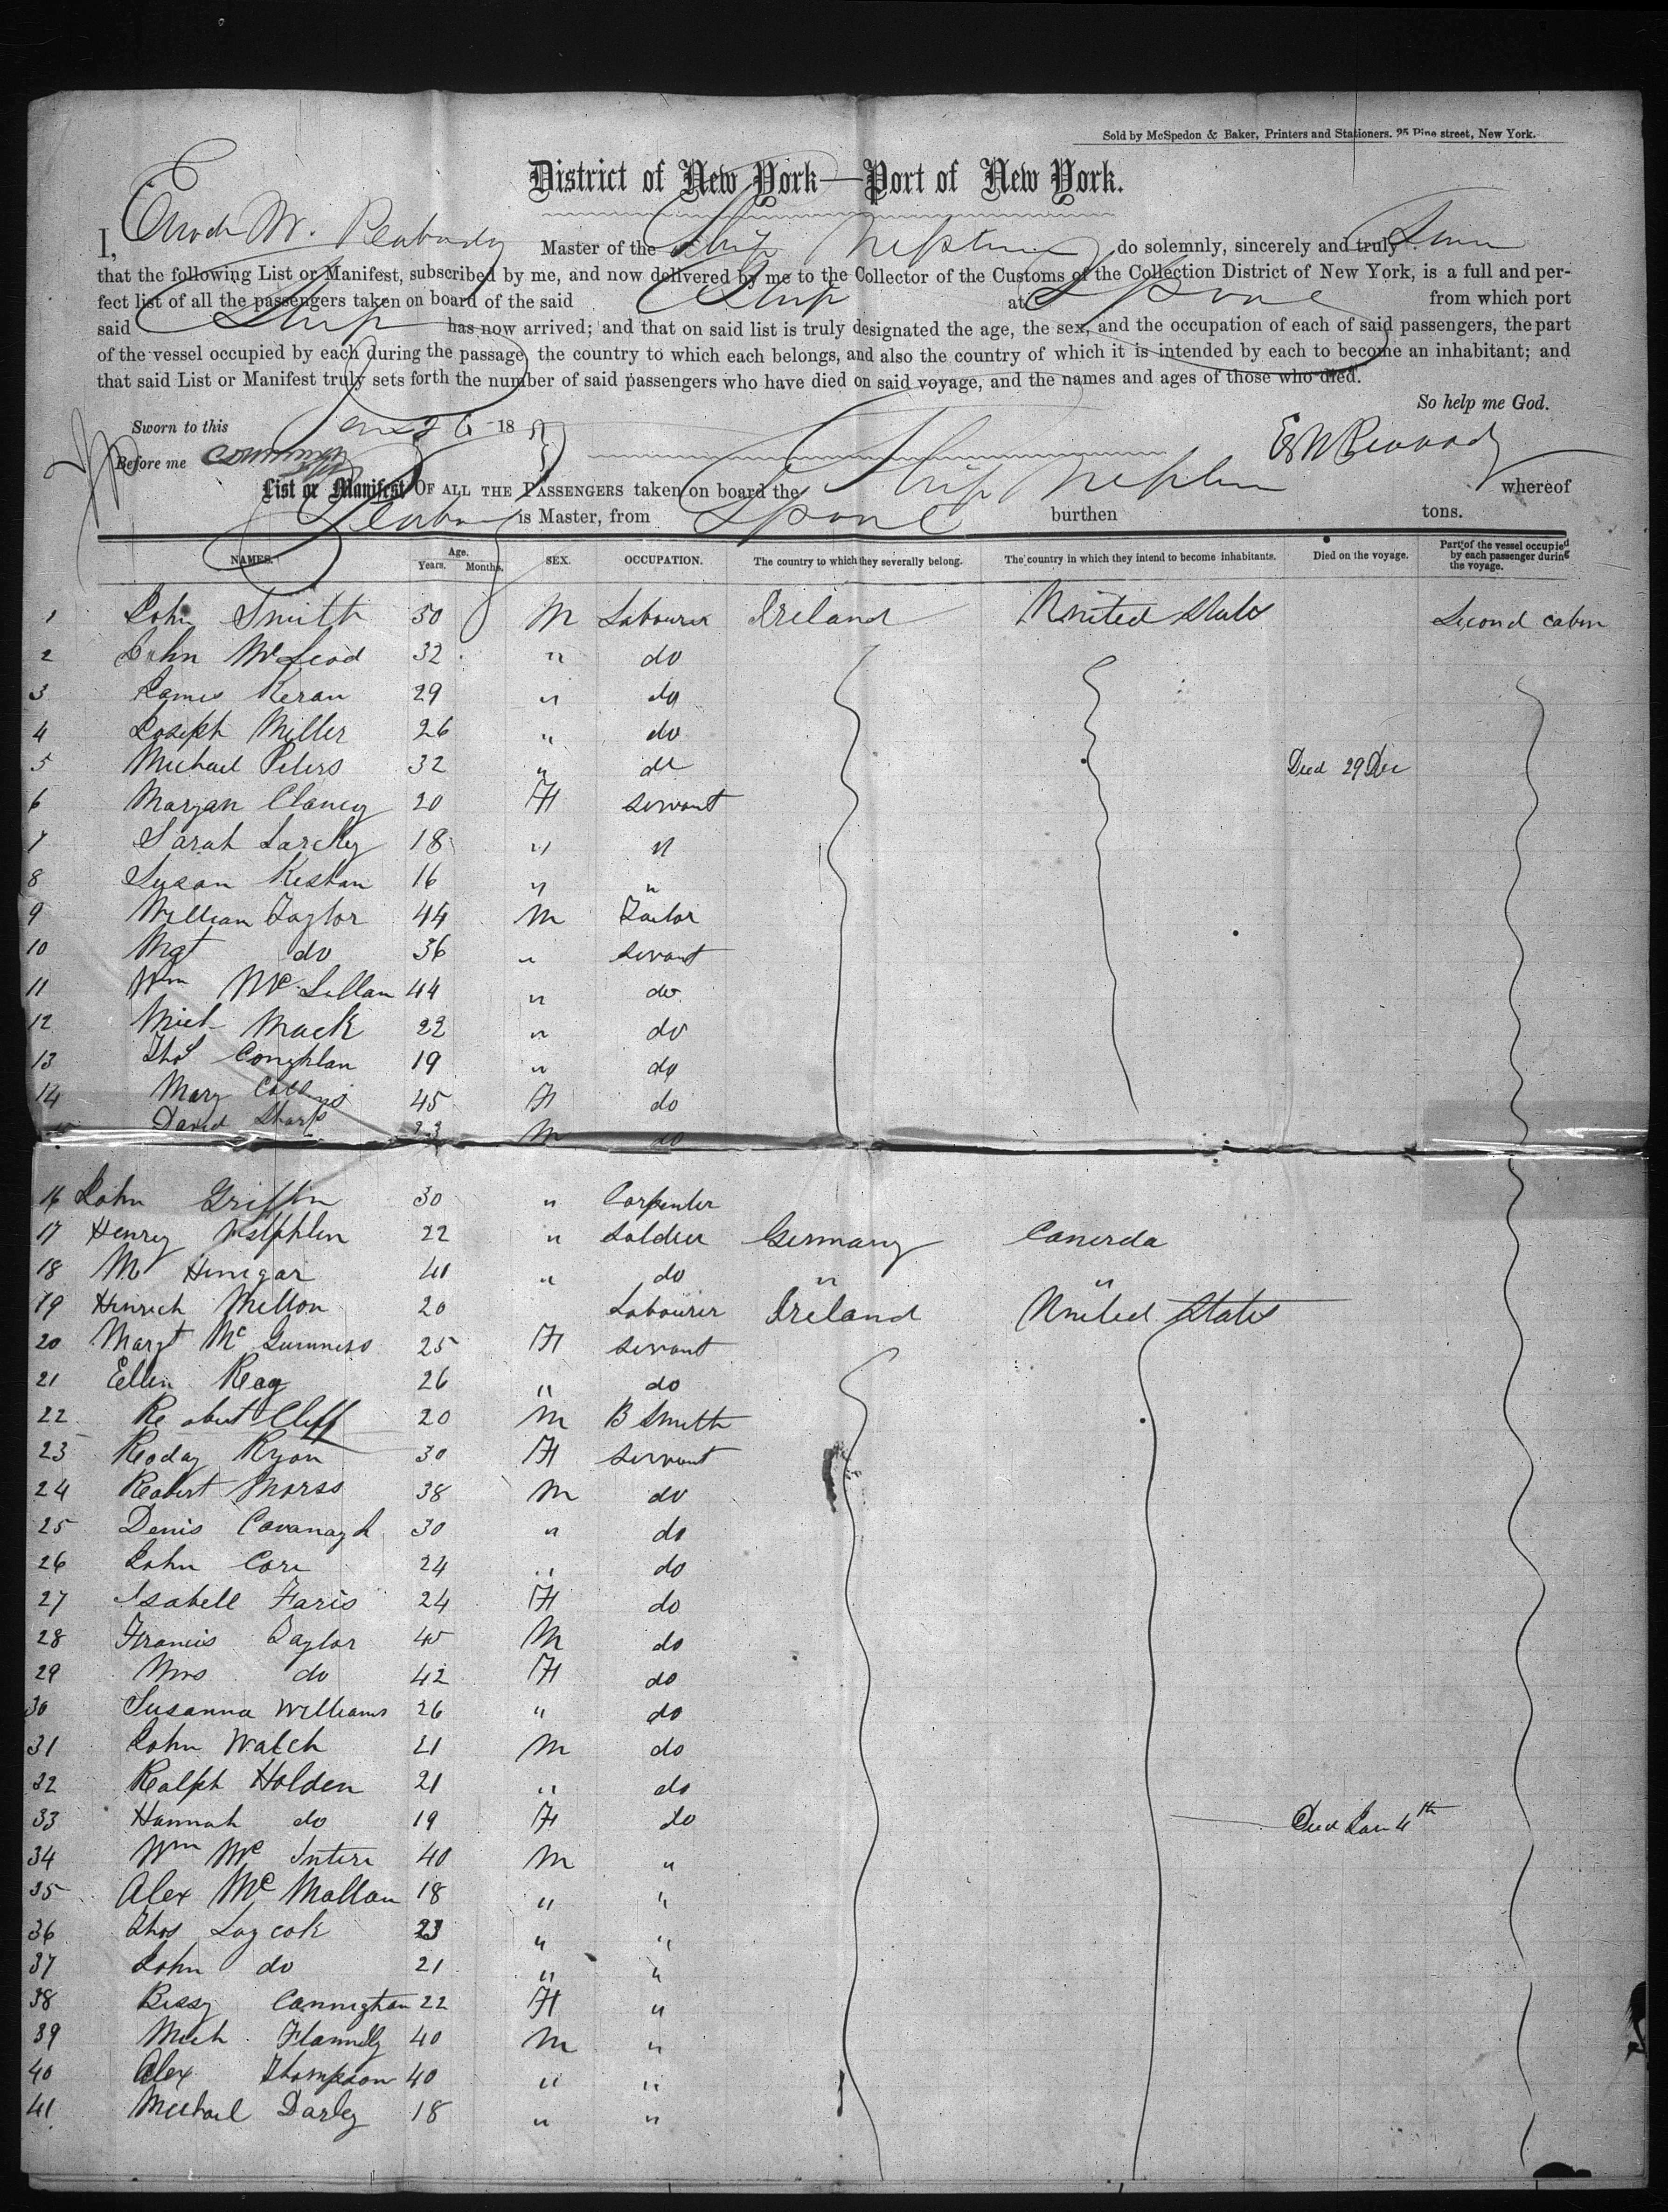 Sold by McSpedon & Baker, Printers and Stationers. 25 Pine street, New York.
District of New York—Port of New York.
I, Enoch W. Peabody Master of the Ship Neptune do solemnly, sincerely and truly
that the following List or Manifest, subscribed by me, and now delivered by me to the Collector of the Customs of the Collection District of New York, is a full and per-
fect list of all the passengers taken on board of the said Ship at LPool from which port
said Ship has now arrived; and that on said list is truly designated the age, the sex, and the occupation of each of said passengers, the part
of the vessel occupied by each during the passage, the country to which each belongs, and also the country of which it is intended by each to become an inhabitant; and
that said List or Manifest truly sets forth the number of said passengers who have died on said voyage, and the names and ages of those who died.
So help me God.
Sworn to this Jan 26 18
Before me
List or Manifest OF ALL THE PASSENGERS taken on board the Ship Neptune whereof
Peabody is Master, from LPool burthen tons.
NAMES. Age. Years. Months. SEX. OCCUPATION. The country to which they severally belong. The country in which they intend to become inhabitants. Died on the voyage. Part of the vessel occupied by each passenger during the voyage.
1 John Smith 50 M Labourer Ireland United States Second cabin
2 John McLeod 32 " do
3 James Keran 29 " do
4 Joseph Miller 26 " do
5 Michael Peters 32 " do Died 29 Dec
6 Maryan Clancy 20 F servant
7 Sarah Larcky 18 " "
8 Susan Keshan 16 " "
9 William Taylor 44 M Tailor
10 Mgt do 36 " servant
11 Wm McLillan 44 " do
12 Mich Mack 22 " do
13 Thos Conghlan 19 " do
14 Mary Collins 45 F do
David Sharp 23 M do
16 John Griffin 30 " Carpenter
17 Henry 22 " Soldier Germany Canerda
18 M Hinegar 41 " do " "
19 Hinrich Mellon 20 Labourer Ireland United States
20 Margt McGuinness 25 F servant
21 Ellen Reay 26 " do
22 Robert Cliff 20 M B Smith
23 Roday Ryan 30 F servant
24 Robert Morss 38 M do
25 Denis Cavanagh 30 " do
26 John Core 24 " do
27 Isabell Faris 24 F do
28 Francis Taylor 45 M do
29 Mrs do 42 F do
30 Susanna Williams 26 " do
31 John Walch 21 M do
32 Ralph Holden 21 " do
33 Hannah do 19 F do Died Jan 4th
34 Wm McIntire 40 M "
35 Alex McMallan 18 " "
36 Thos Laycok 23 " "
37 John do 21 " "
38 Bessy Cannigham 22 F "
39 Mich Flannelly 40 M "
40 Alex Thompson 40 " "
41 Michael Darley 18 " "